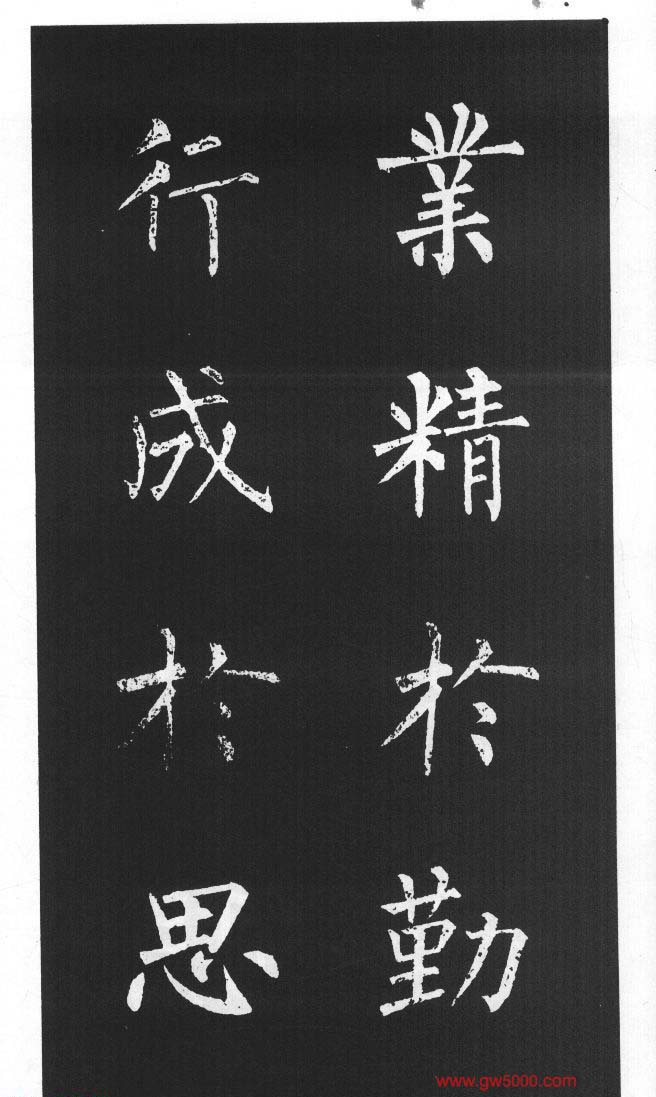 業精於勤
行成於思
www.gw5000.com